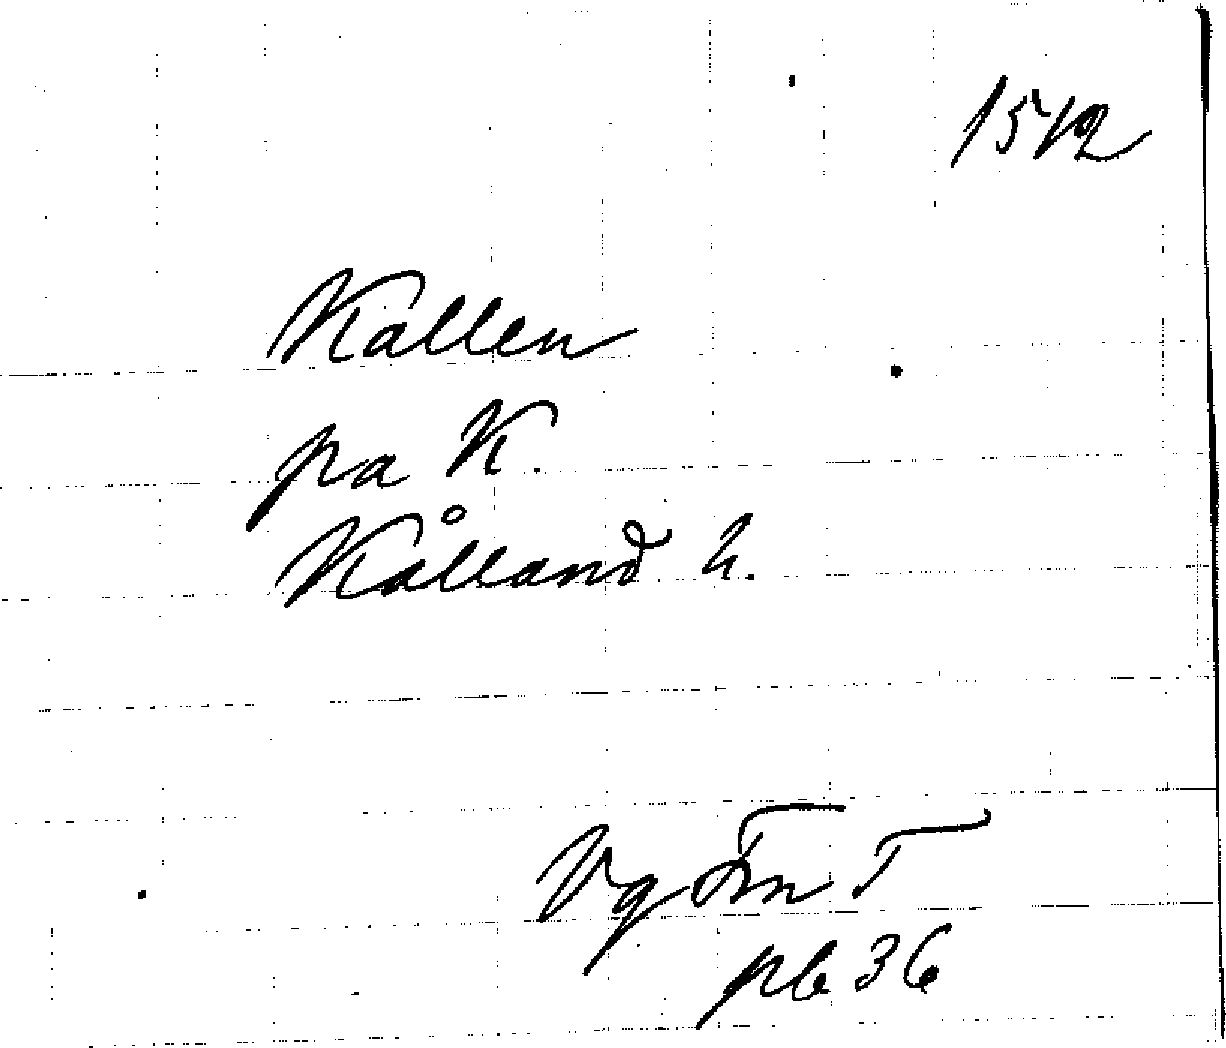 1512
Kallen
pa K.
Kålland h.
Vg Fm T
pb 36